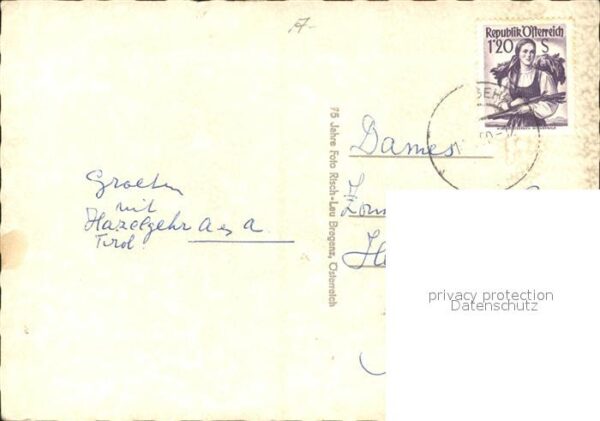 A-
Republik Österreich
1'20 S
Dames
75 Jahre Foto Risch-Lau Bregenz, Österreich
Groeten
mit
Hazelgehr a a
Tirol
privacy protection
Datenschutz